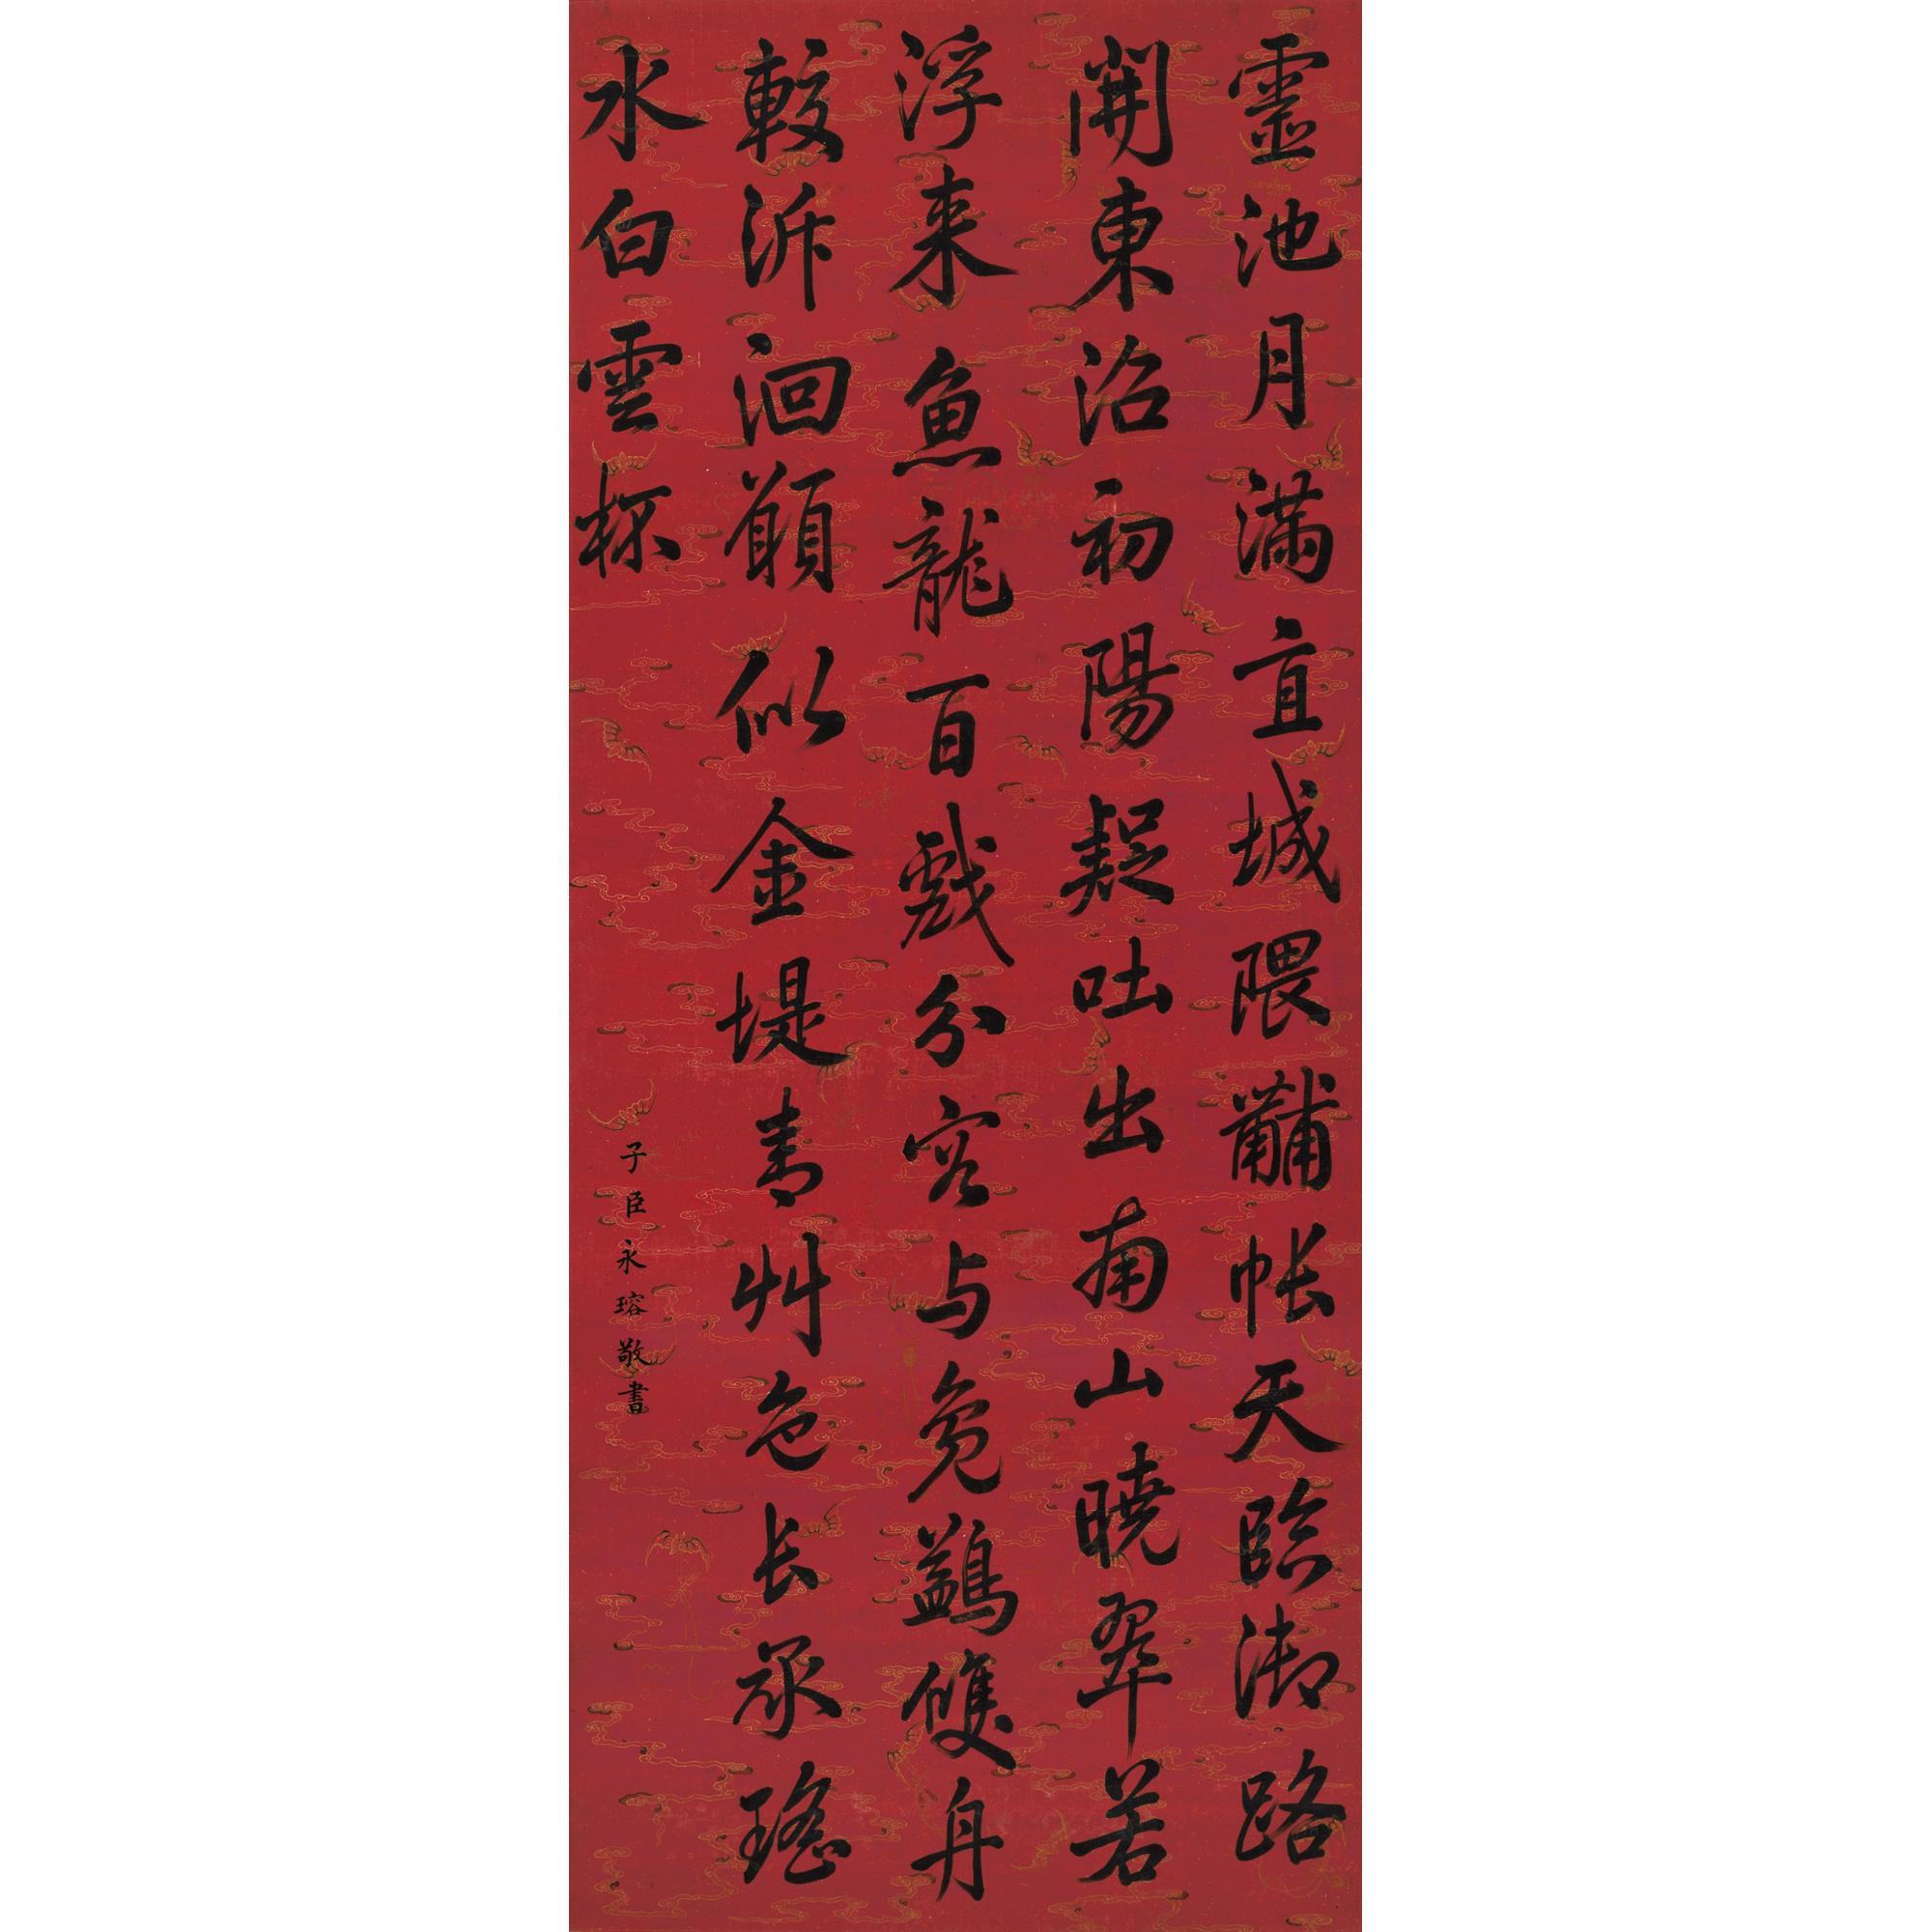 靈池月滿直城隈黼帳天臨御路
開東沼初陽疑吐出南山曉翠若
浮来魚龍百戲分容与鳧鷁雙舟
較泝洄願似金堤青艸色长承瑤
水白雲杯
子臣永瑢敬書